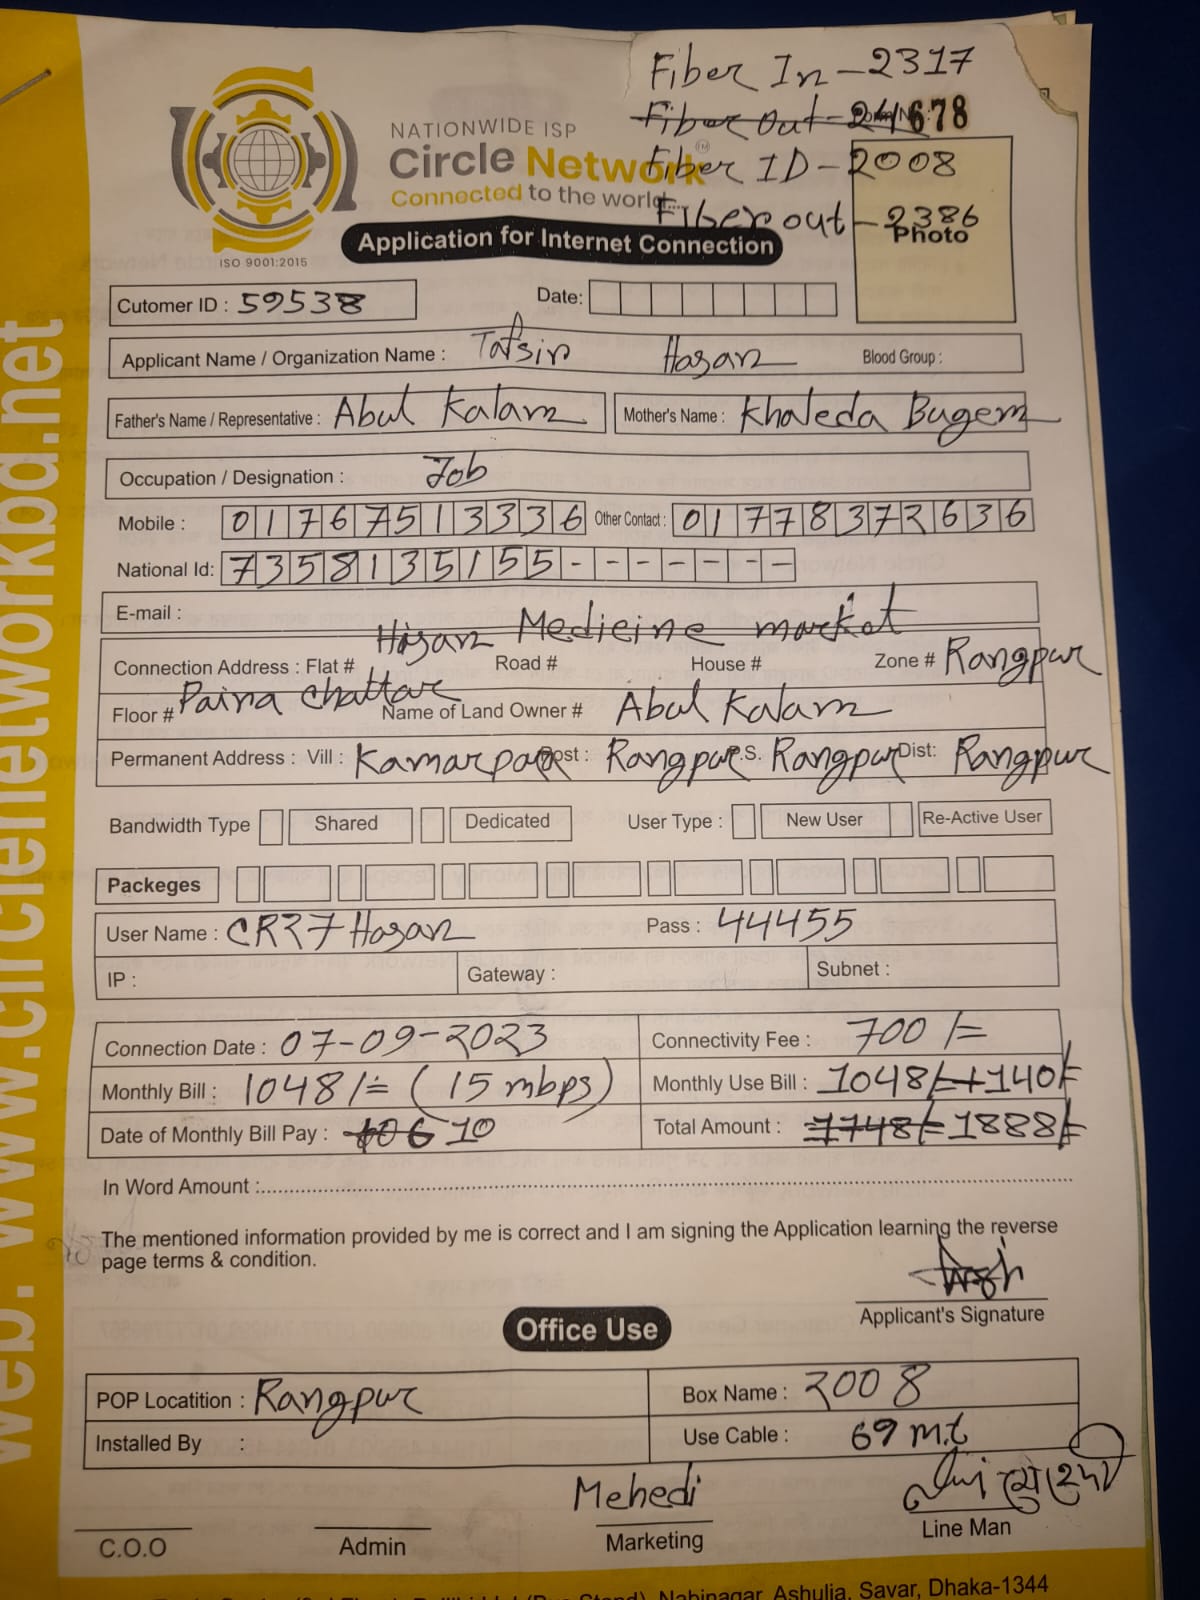 Fiber In - 2317
Fiber Out - 241
678
NATIONWIDE ISP
Circle Network
Fiber ID - 2008
Connected to the world....
Fiber out - 2386
Photo
ISO 9001:2015
Application for Internet Connection
Cutomer ID : 59538 Date:
Applicant Name / Organization Name : Tafsin Hasan Blood Group :
Father's Name / Representative : Abul Kalam Mother's Name : Khaleda Bugem
Occupation / Designation : Job
Mobile : 01767513336 Other Contact : 01778372636
National Id: 7358135155 - - - - - - -
E-mail :
Hasan Medicine market
Connection Address : Flat # Road # House # Zone # Rangpur
Floor # Paira Chattar Name of Land Owner # Abul Kalam
Permanent Address : Vill : Kamarpara Post : Rangpur P.S. Rangpur Dist: Rangpur
Bandwidth Type Shared Dedicated User Type : New User Re-Active User
Packeges
User Name : CRR7 Hasan Pass : 44455
IP : Gateway : Subnet :
Connection Date : 07-09-2023 Connectivity Fee : 700/=
Monthly Bill : 1048/= (15 mbps) Monthly Use Bill : 1048/=+140/=
Date of Monthly Bill Pay : 10 Total Amount : 1748/= 1888/=
In Word Amount :
The mentioned information provided by me is correct and I am signing the Application learning the reverse
page terms & condition.
Applicant's Signature
Office Use
POP Locatition : Rangpur Box Name : 2008
Installed By : Use Cable : 69 m.t
Mehedi
C.O.O Admin Marketing Line Man
Nabinagar, Ashulia, Savar, Dhaka-1344
web: www.circlenetworkbd.net